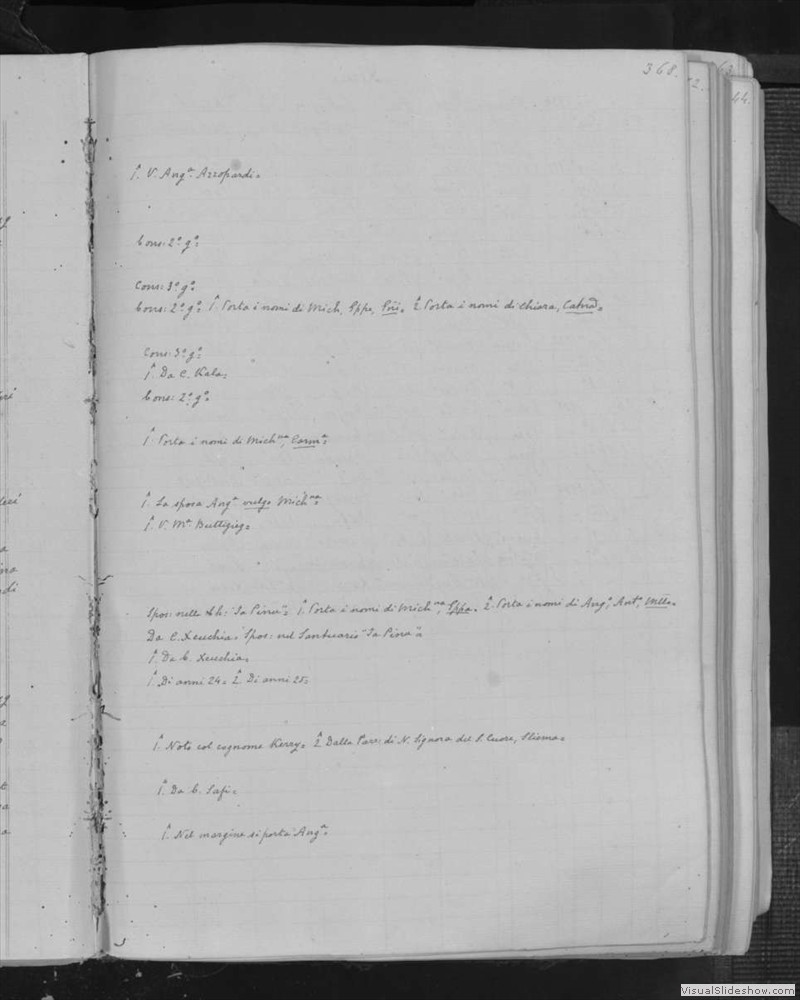 368.
44.
1̂. V. Angª. Azzopardi=
Cons: 2º gº=
Cons: 3º gº=
Cons: 2º gº= 1̂. Porta i nomi di Mich, Gppe, 2̂. Porta i nomi di Chiara,
Cons: 3º gº=
1̂. Da C. Kala=
Cons: 2º gº=
1̂. Porta i nomi di Michⁿª, Carmª=
1̂. La sposa Angª vulgo Michⁿª=
1̂. V. Mª Buttigieg=
Spos: nella Ch: "Ta Pinu"= 1̂. Porta i nomi di Michⁿª, Gppa= 2̂. Porta i nomi di Angº, Antº,
Da C. Xeuchia= Spos: nel Santuario "Ta Pinu"=
1̂. Da C. Xeuchia=
1̂. Di anni 24= 2̂. Di anni 25=
1̂. Noto col cognome Kerry= 2̂. Dalla Parr: di N. Signora del S. Cuore, Sliema=
1̂. Da C. Safi=
1̂. Nel margine si porta Angª=
VisualSlideshow.com